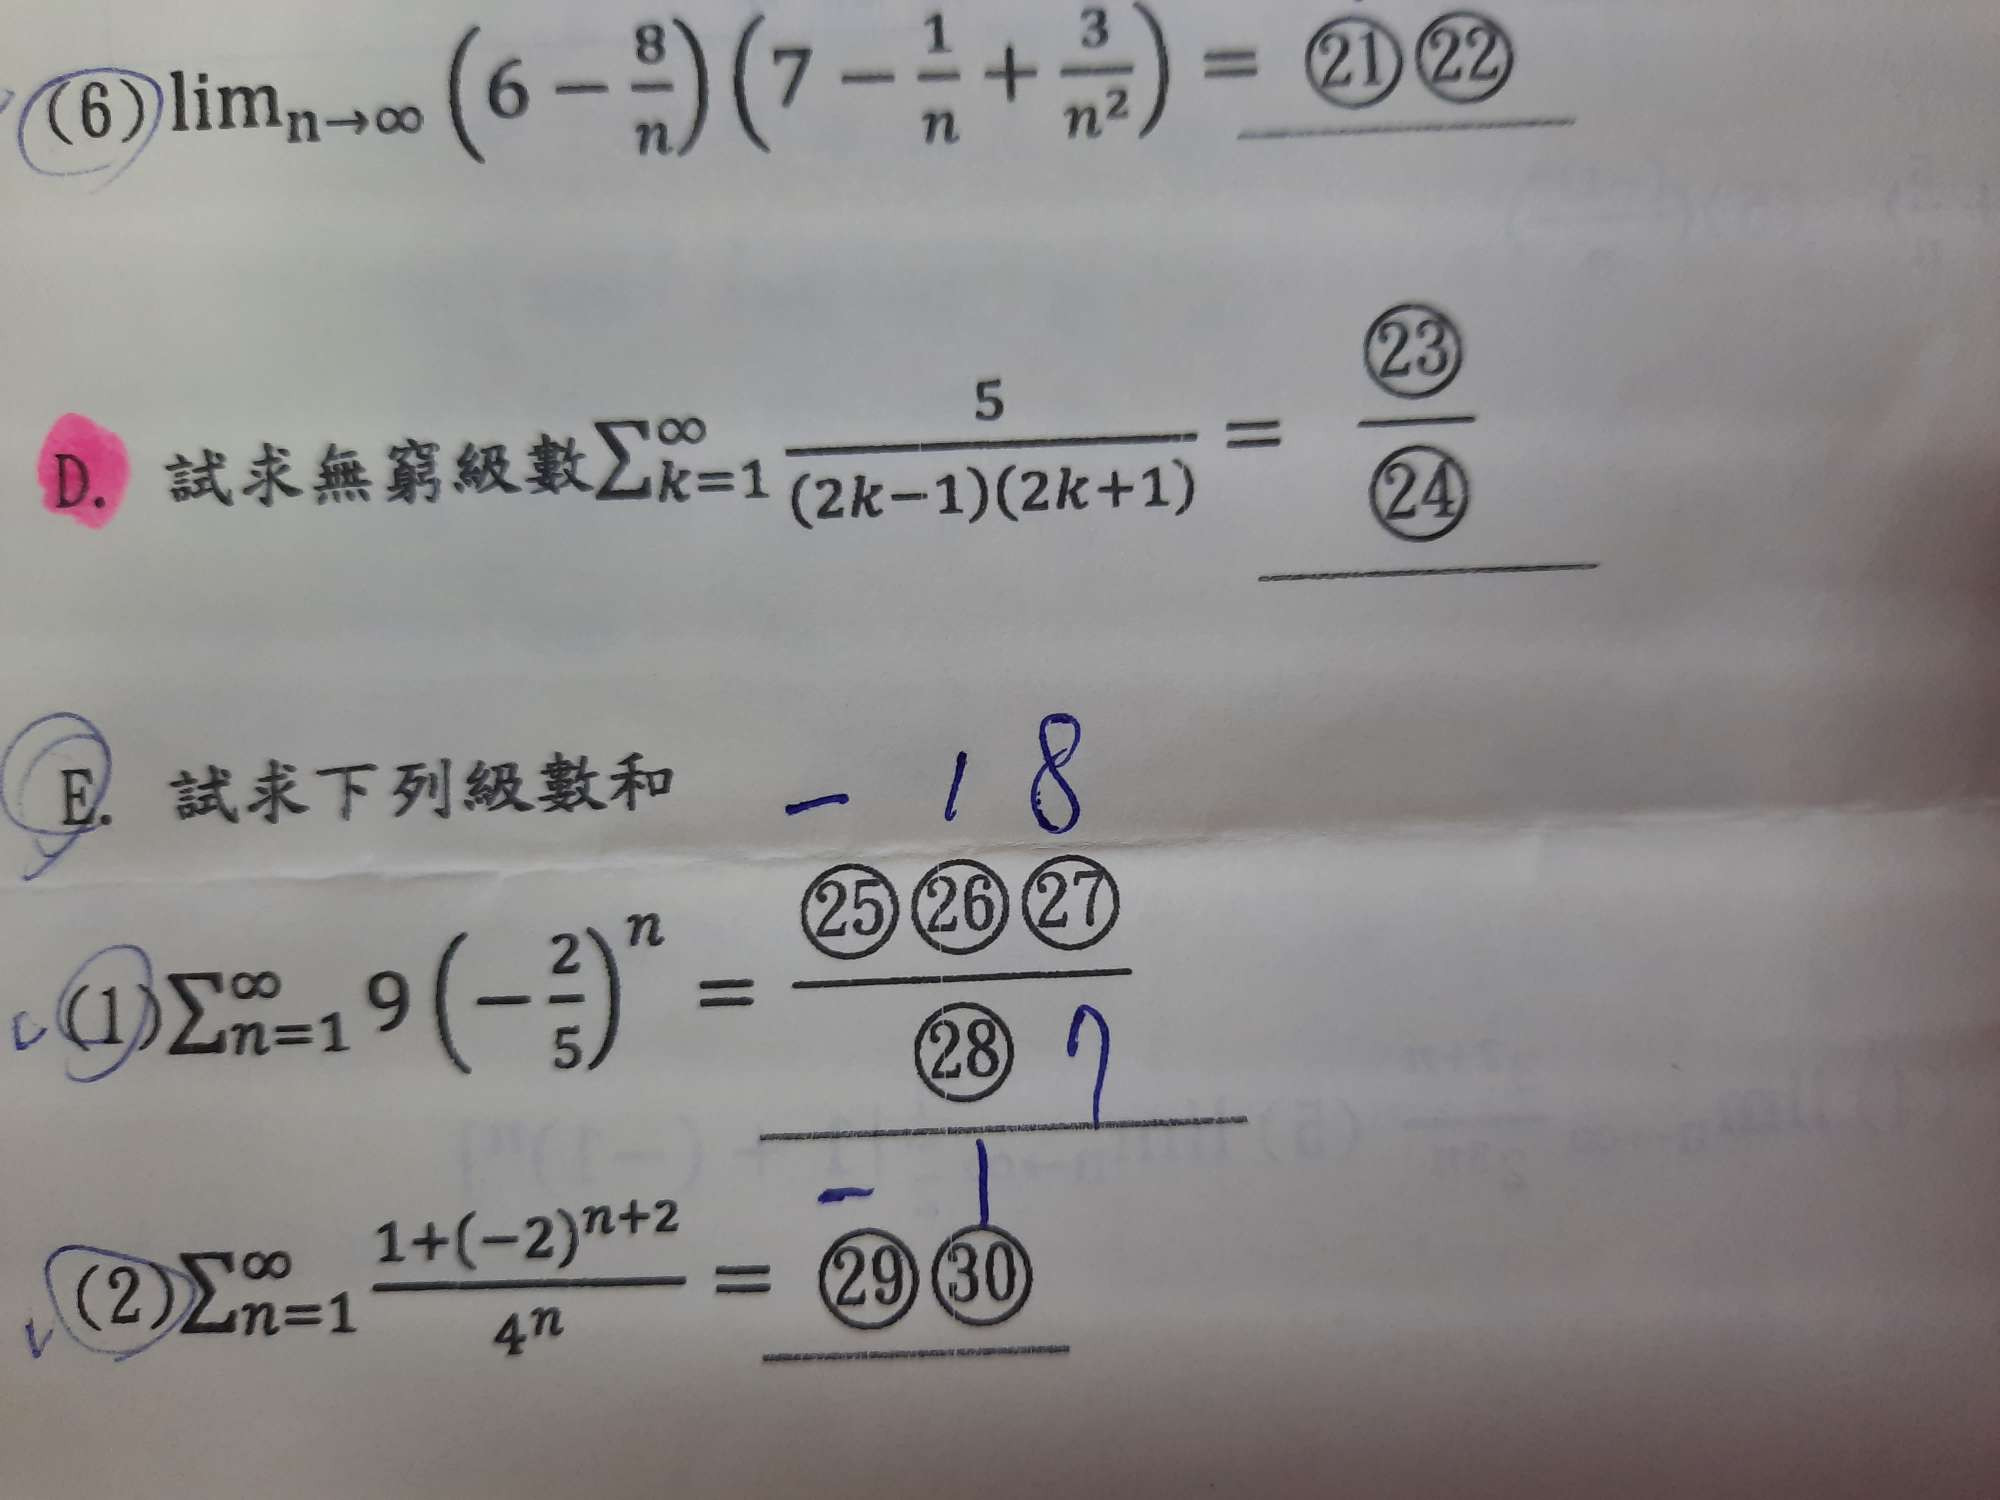 (6) limₙ→∞ (6 − 8/n)(7 − 1/n + 3/n²) = ㉑㉒
D. 試求無窮級數∑∞k=1 5/((2k−1)(2k+1)) = ㉓/㉔
E. 試求下列級數和
− 1 8
(1) ∑∞n=1 9(−2/5)ⁿ = ㉕㉖㉗/㉘ 7
− 1
(2) ∑∞n=1 (1+(−2)ⁿ⁺²)/4ⁿ = ㉙㉚